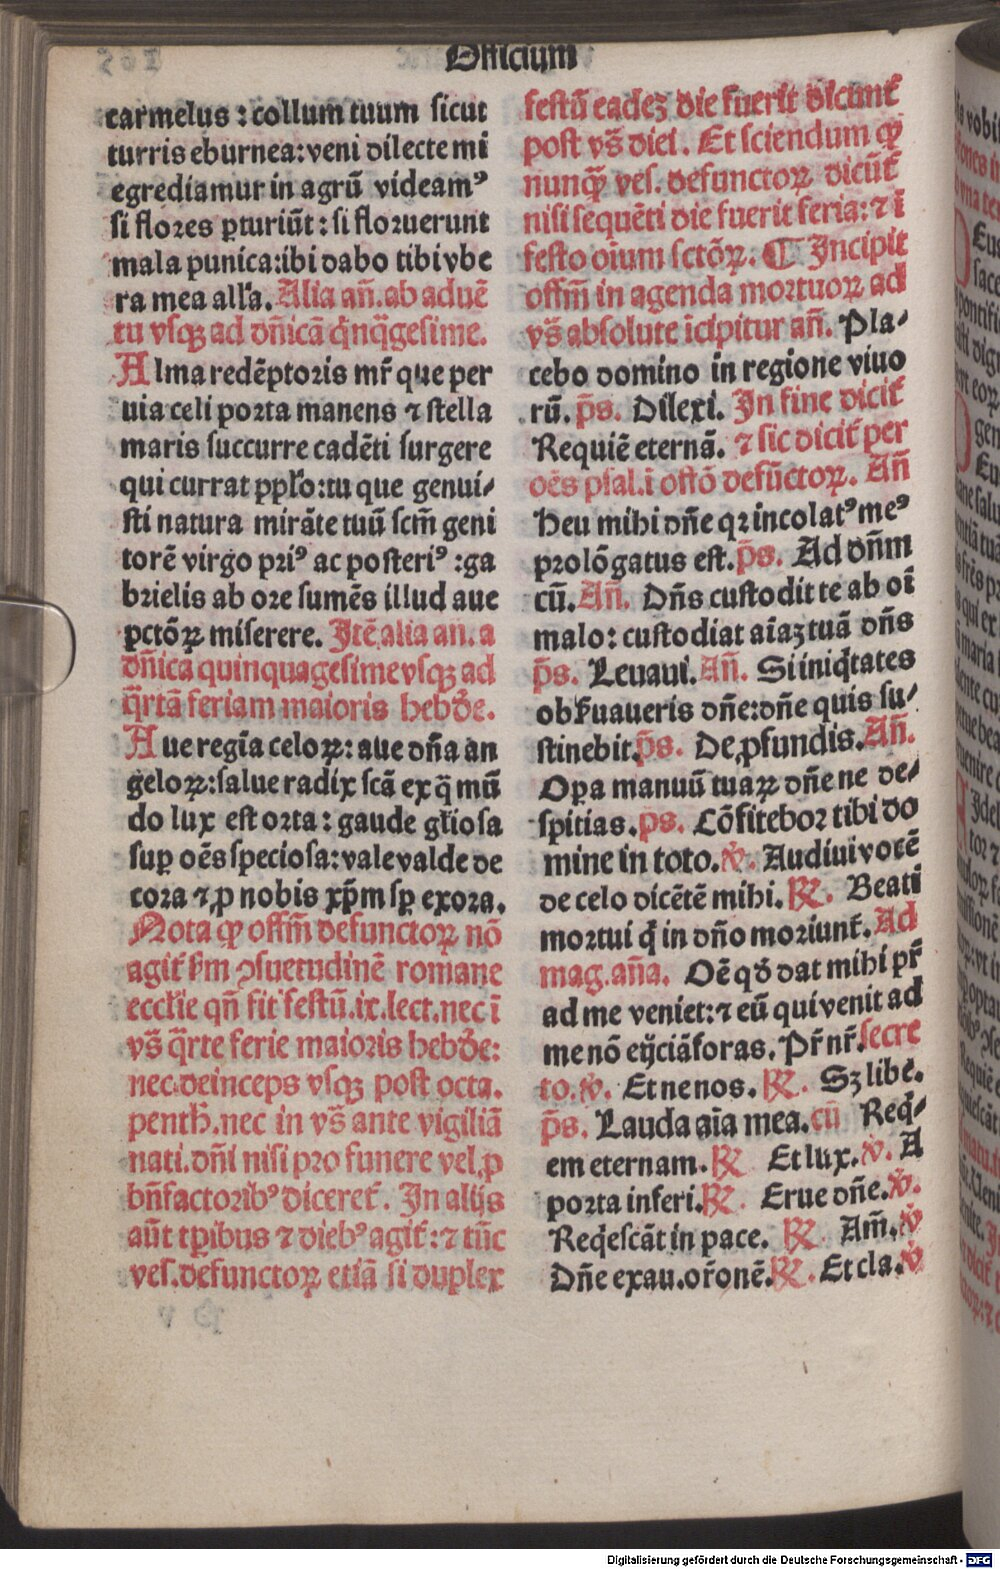 Officium
carmelus : collum tuum sicut
turris eburnea: veni dilecte mi
egrediamur in agrū videamꝰ
si flores ꝑturiūt : si floruerunt
mala punica: ibi dabo tibi vbe
ra mea all'a. Alia añ. ab aduē
tu vsqꝫ ad dñicā q̇nq̄gesime.
Alma redēptoris mr̄ que per
uia celi porta manens ⁊ stella
maris succurre cadēti surgere
qui currat ppl'o: tu que genui⸗
sti natura mirāte tuū scm̄ geni
torē virgo priꝰ ac posteriꝰ : ga
brielis ab ore sumēs illud aue
pctōꝝ miserere. Itē alia an. a
dñica quinquagesime vsqꝫ ad
q̄rtā feriam maioris hebd'e.
Aue regīa celoꝝ: aue dña an
geloꝝ: salue radix scā ex q̄ mū
do lux est orta : gaude gl'iosa
suꝑ oēs speciosa: vale valde de
cora ⁊ ꝓ nobis xp̄m sꝑ exora.
Nota ꝙ offm̄ defunctoꝝ nō
agit' s'm ꝯsuetudinē romane
eccl'ie qñ fit festū .ix. lect. nec ī
vs̄ q̄rte ferie maioris hebd'e:
nec deinceps vsqꝫ post octa.
penth. nec in vs̄ ante vigiliā
nati. dñi nisi pro funere vel ꝓ
bn̄factoribꝰ diceret'. In alijs
aūt tꝑibus ⁊ diebꝰ agit' : ⁊ tūc
ves. defunctoꝝ etiā si duplex
festū eadeꝫ die fuerit dicunt'
post vs̄ diei. Et sciendum ꝙ
nunq̄ ves. defunctoꝝ dicūt'
nisi sequēti die fuerit feria: ⁊ ī
festo oium sctōꝝ. ¶ Incipit
offm̄ in agenda mortuoꝝ ad
vs̄ absolute īcipitur añ. Pla⸗
cebo domino in regione viuo
rū. p̄s. Dilexi. In fine dicit'
Requiē eternā. ⁊ sic dicit' per
oēs psal. i offō defūctoꝝ. Añ
Heu mihi dñe qꝛ incolatꝰ meꝰ
prolōgatus est. p̄s. Ad dñm
cū. Añ. Dñs custodit te ab oī
malo : custodiat aīaꝫ tuā dñs
p̄s. Leuaui. Añ. Si iniq̇tates
obs'uaueris dñe: dñe quis su⸗
stinebit. p̄s. De ꝓfundis. Añ.
Oꝑa manuū tuaꝝ dñe ne de⸗
spitias. p̄s. Cōfitebor tibi do
mine in toto. ℣. Audiui vocē
de celo dicētē mihi. ℟. Beati
mortui q̇ in dño moriunt'. Ad
mag. aña. Oē qd' dat mihi pr̄
ad me veniet: ⁊ eū qui venit ad
me nō eijciā foras. Pr̄ nr̄. secre
to. ℣. Et ne nos. ℟. Sꝫ libe.
p̄s. Lauda aīa mea. cū Req̇⸗
em eternam. ℟. Et lux. ℣. A
porta inferi. ℟. Erue dñe. ℣.
Req̇escāt in pace. ℟. Am̄. ℣
Dñe exau. or̄onē. ℟. Et cla. ℣
Digitalisierung gefördert durch die Deutsche Forschungsgemeinschaft - DFG